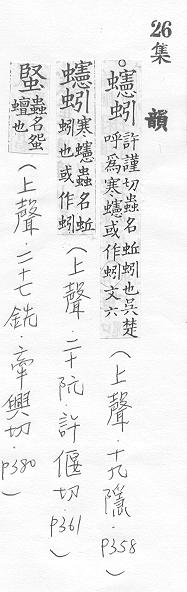 26集 韻
蠵蚓 許謹切蟲名蚯蚓也吳楚呼為寒蠵或作蚓文六(上聲.二十九隱.P358)
蠵蚓 寒蠵蟲名蚯蚓也或作蚓(上聲.二十阮.許偃切.P361)
蜸 蟲名蜸蟺也(上聲.二十七銑.牽典切.P380)